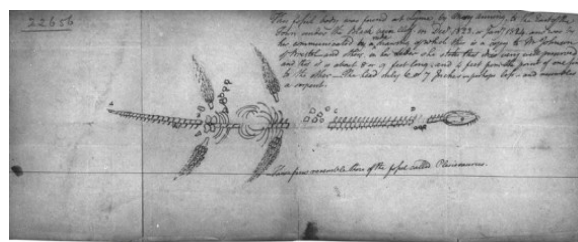 22656
This fossil body was found at Lyme, by Mary Anning, to the East of the
Town under the Black Ven Cliff, in Decr 1823 or Jany 1824, and was by
her communicated by a drawing of which this is a copy to Mr Johnson
of Bristol and others, in her letter she states that it is very well preserved
and that it is about 8 or 9 feet long; and 6 feet from the point of one fin
to the other — The head only 6 or 7 Inches in length and resembles
a serpent.
These fins resemble those of the fossil called Plesiosaurus.